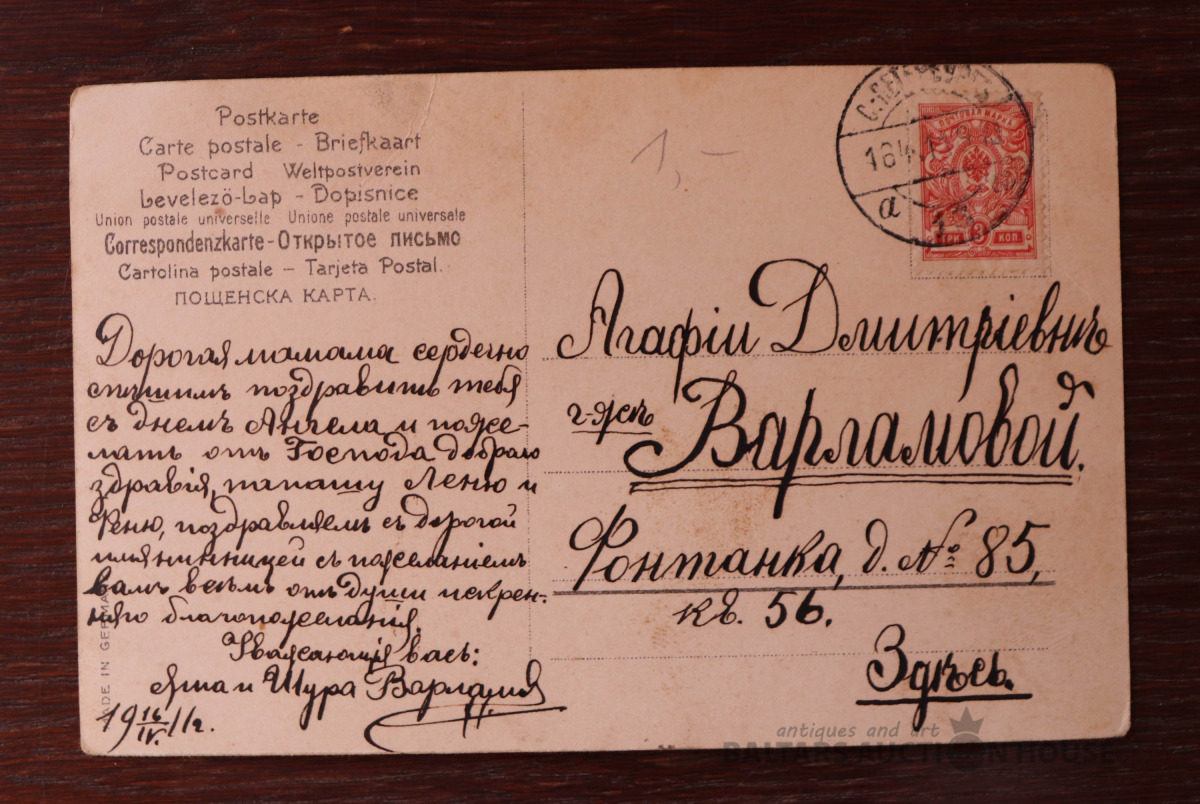 Postkarte
Carte postale - Briefkaart
Postcard Weltpostverein
Levelező-Lap - Dopisnice
Union postale universelle Unione postale universale
Correspondenzkarte - Открытое письмо
Cartolina postale - Tarjeta Postal.
ПОЩЕНСКА КАРТА.
Дорогая мамама сердечно
спѣшимъ поздравить тебя
съ днемъ Ангела и поже-
лать отъ Господа добраго
здравія, папашу Леню и
Феню, поздравляемъ съ дорогой
имянинницей съ пожеланіемъ
вамъ всѣмъ отъ души искрен-
няго благопожеланія.
Уважающія васъ:
Яша и Шура
19 16/IV. 11 г.
MADE IN GERMA
1,-
С.ПЕТЕРБУРГЪ
16
a
ПОЧТОВАЯ МАРКА
ТРИ 3 КОП.
Агафіи Дмитріевнѣ
г-жѣ
Варламовой.
Фонтанка, д. № 85,
кв. 56.
Здѣсь.
antiques and art
BALTARS AUCTION HOUSE